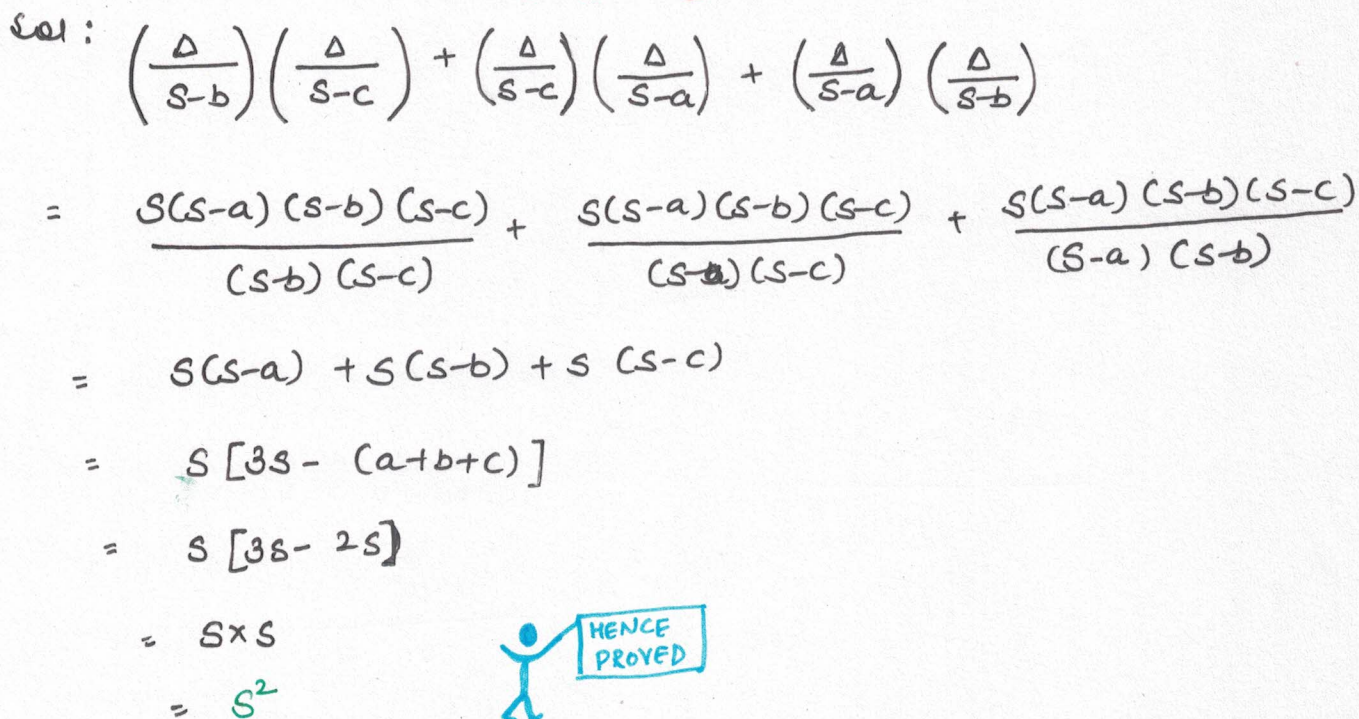 Sol: (Δ/(S-b)) (Δ/(S-c)) + (Δ/(S-c)) (Δ/(S-a)) + (Δ/(S-a)) (Δ/(S-b))
= S(S-a)(S-b)(S-c)/((S-b)(S-c)) + S(S-a)(S-b)(S-c)/((S-a)(S-c)) + S(S-a)(S-b)(S-c)/((S-a)(S-b))
= S(S-a) + S(S-b) + S(S-c)
= S[3S - (a+b+c)]
= S[3S - 2S]
= S×S
HENCE
PROVED
= S²